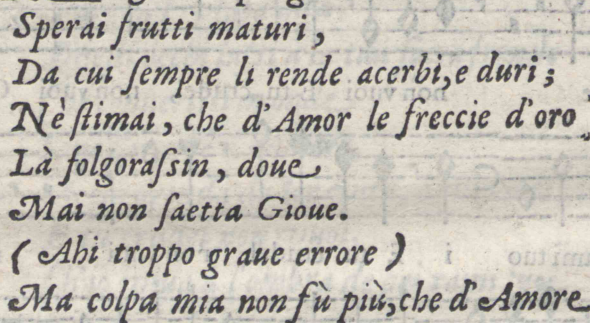 Sperai frutti maturi,
Da cui ſempre li rende acerbi,e duri;
Nè ſtimai, che d'Amor le freccie d'oro
Là folgoraſſin, doue
Mai non ſaetta Gioue.
( Ahi troppo graue errore )
Ma colpa mia non fù più,che d'Amore